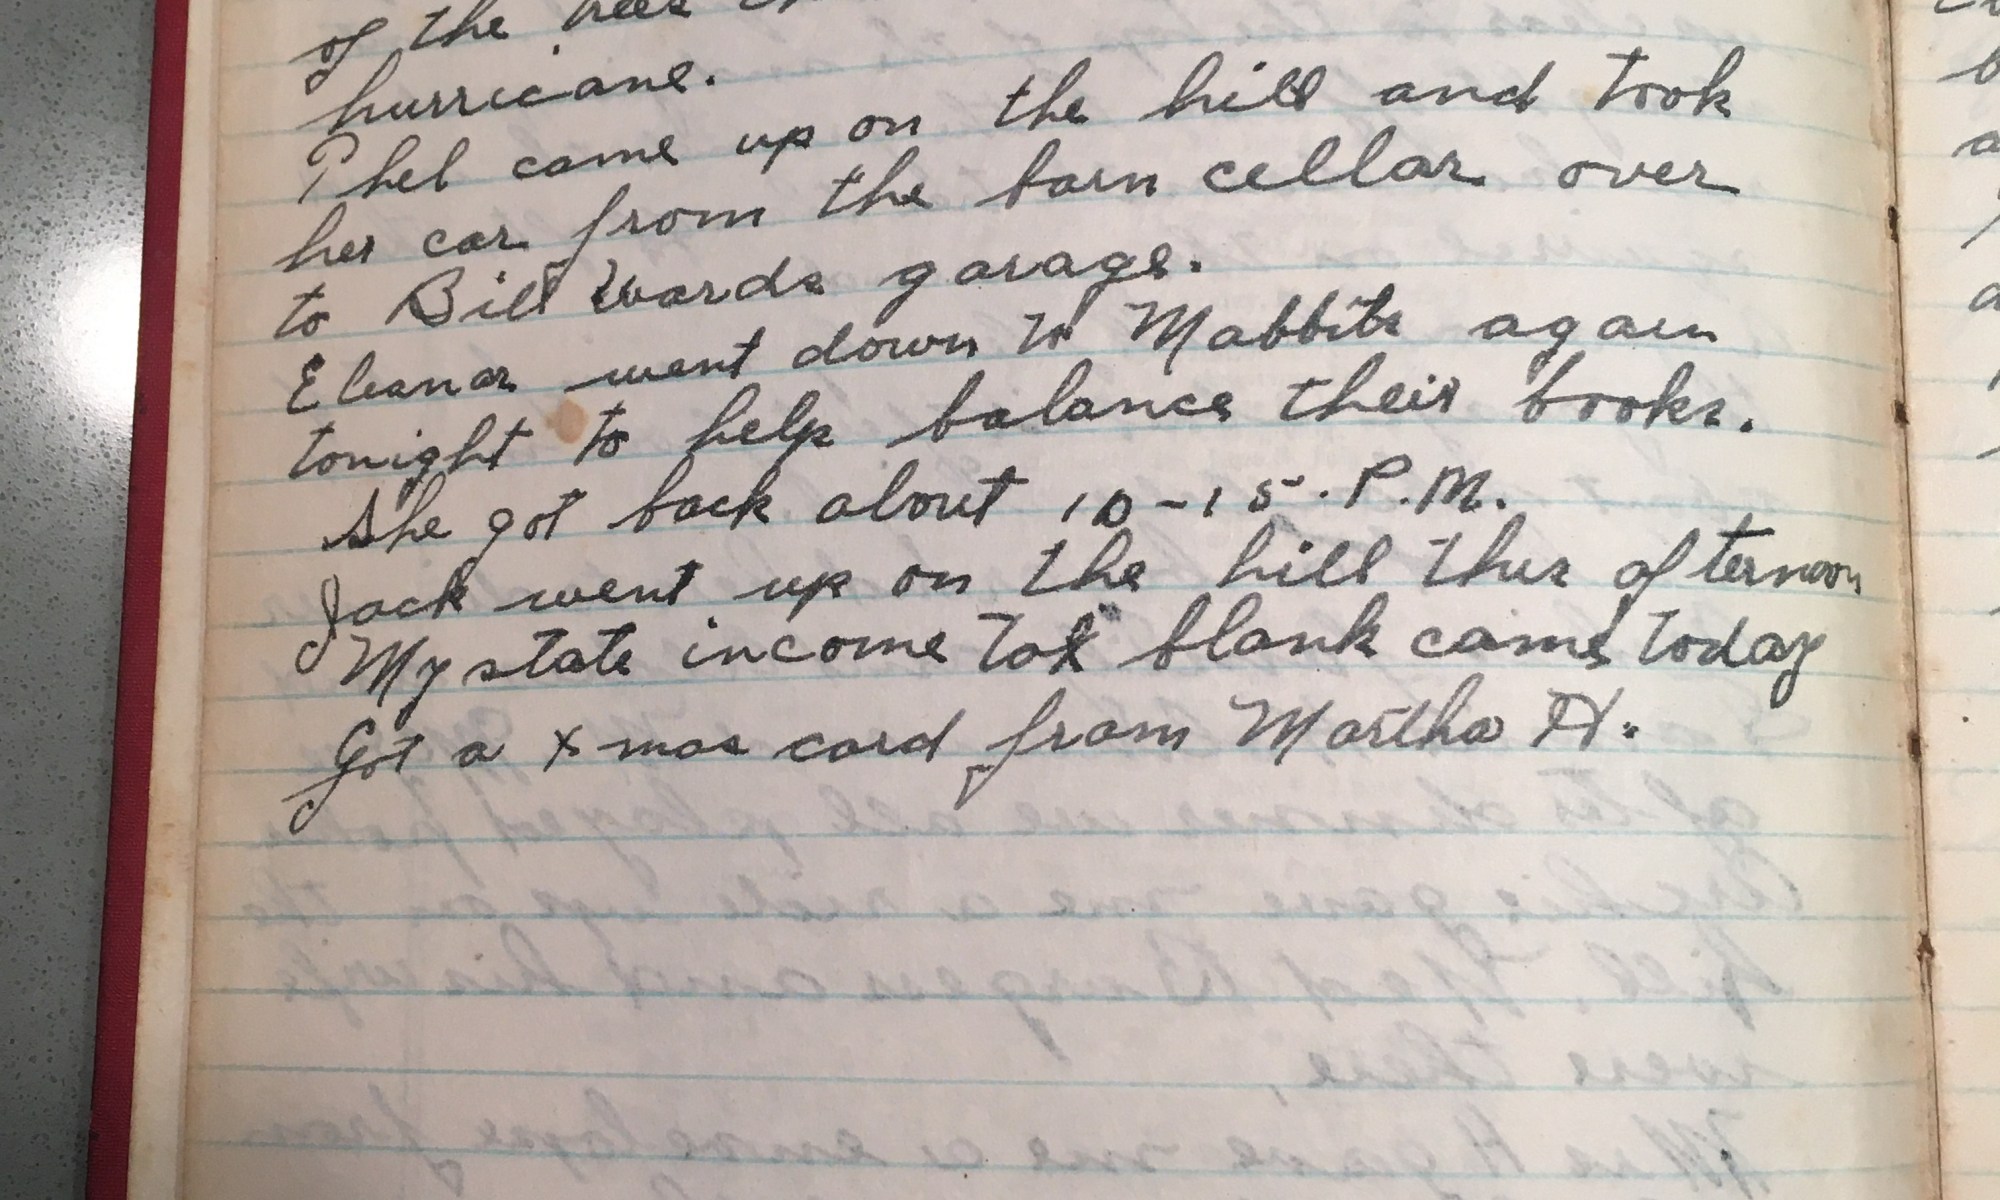 of the trees
hurricane.
Phel came up on the hill and took
her car from the barn cellar over
to Bill Wards garage.
Eleanor went down to Mabbits again
tonight to help balance their books.
She got back about 10-15. P.M.
Jack went up on the hill this afternoon
My state income tax blank came today
Got a Xmas card from Martha H.